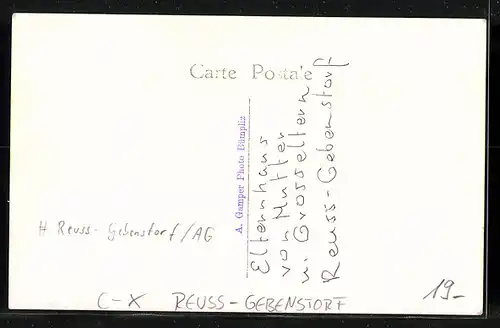 Carte Postale
A. Gamper Photo Bümpliz
Elternhaus
von Mutter
u. Grosseltern
Reuss-Gebenstorf
# Reuss-Gebenstorf/AG
C-X REUSS-GEBENSTORF
19.-